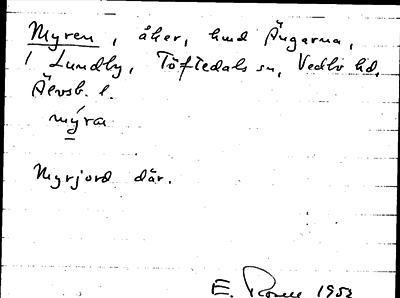 Myren, åker, hmd Ängarna,
i Lundby, Töftedals sn, Vedbo hd,
Älvsb. l.
mýra
Myrjord där.
E. Rosell 1953